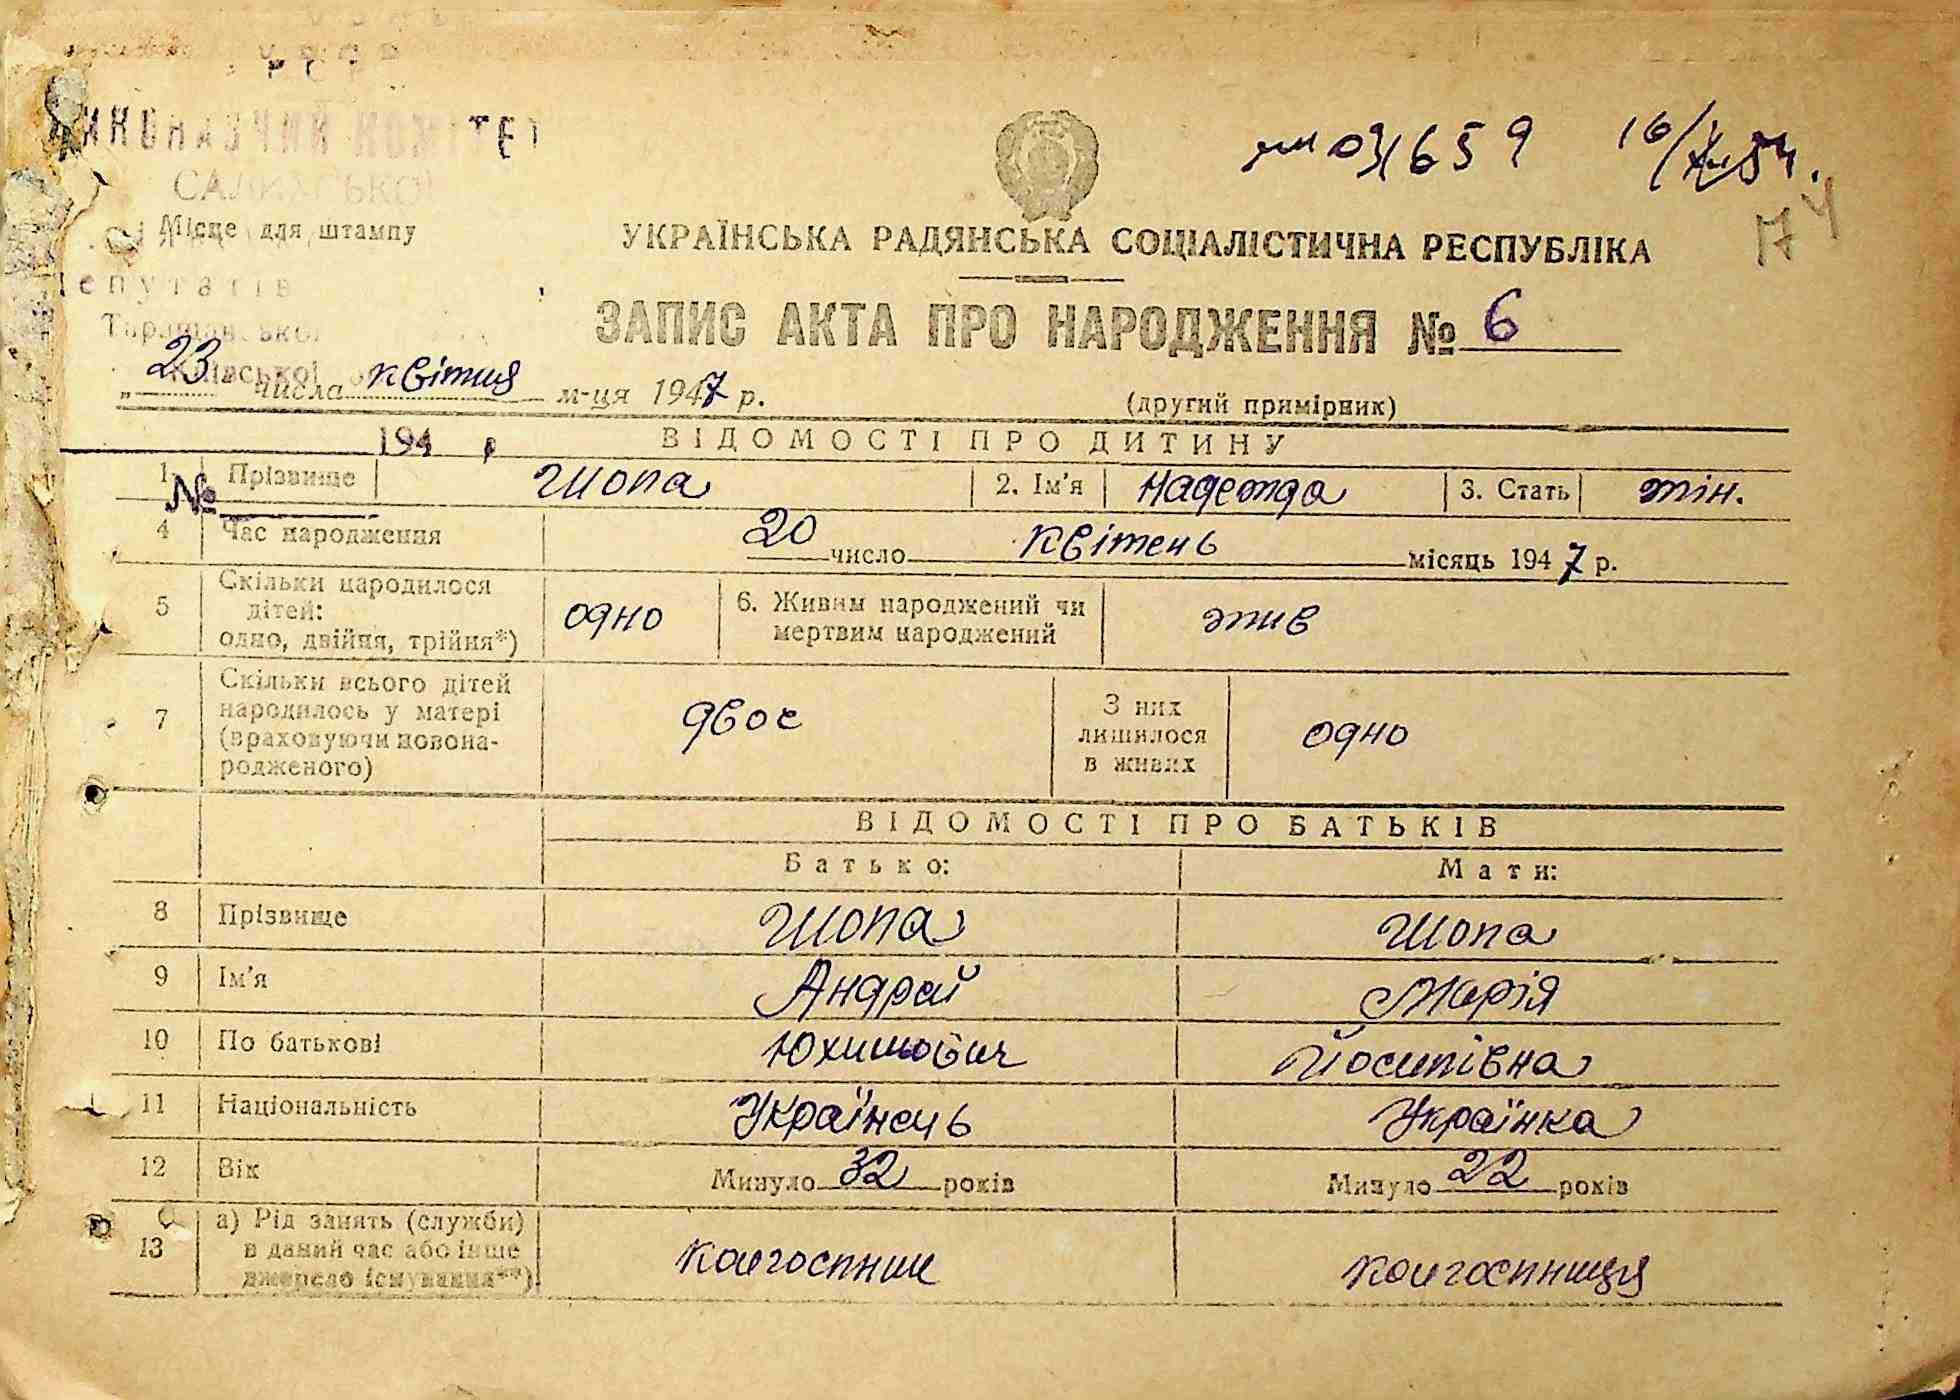 УРСР
ВИКОНАВЧИЙ КОМІТЕТ
01659 16/
САЛИ СЬКОЇ
Місце для штампу
74
УКРАЇНСЬКА РАДЯНСЬКА СОЦІАЛІСТИЧНА РЕСПУБЛІКА
депутатів
Таращанської
ЗАПИС АКТА ПРО НАРОДЖЕННЯ № 6
Київської
„23“ числа квітня м-ця 1947 р.
(другий примірник)
194 р
ВІДОМОСТІ ПРО ДИТИНУ
№
1 Прізвище Шопа 2. Ім'я Надежда 3. Стать жін.
4 Час народження 20 число квітень місяць 1947 р.
5 Скільки народилося
дітей:
одно, двійня, трійня*) одно
6. Живим народжений чи
мертвим народжений жив
7 Скільки всього дітей
народилось у матері
(враховуючи новона-
родженого) двоє
З них
лишилося
в живих одно
ВІДОМОСТІ ПРО БАТЬКІВ
Батько: Мати:
8 Прізвище Шопа Шопа
9 Ім'я Андрей Марія
10 По батькові Юхимович Йосипівна
11 Національність Українець Українка
12 Вік Минуло 32 років Минуло 22 років
13 а) Рід занять (служби)
в даний час або інше
джерело існування**) колгоспник колгоспниця